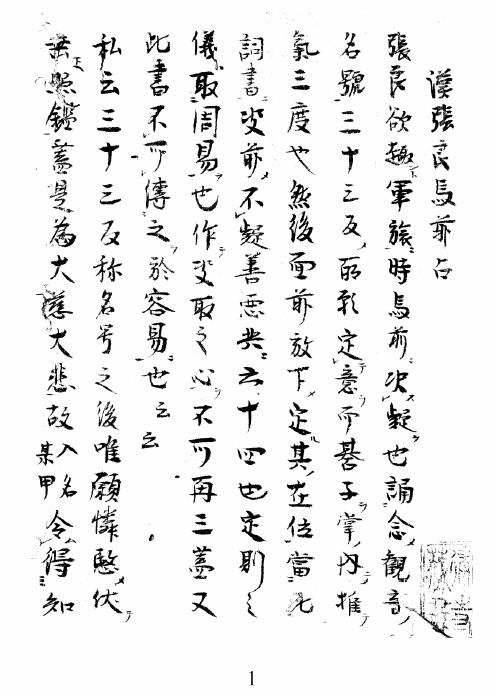 漢張良馬前占
張良欲趣軍旅時馬前決疑也誦念觀音
名號三十三反所彰定意而碁子掌内推
氣三度也然後面前放下定其在位當此
詞書決前不疑善惡共六十四也定則之
儀取周易也作決取之心不可再三蓋又
此書不可傳之於容易也云云
私云三十三反称名号之後唯願憐愍伏
垂照鑑蓋是為大慈大悲故入名某甲令得知
1